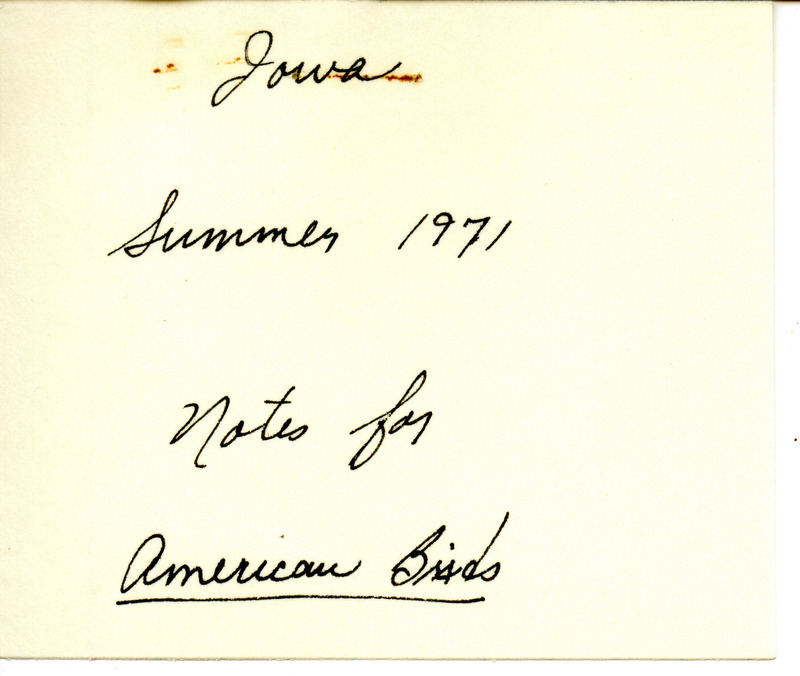 Iowa
Summer 1971
Notes for
American Birds